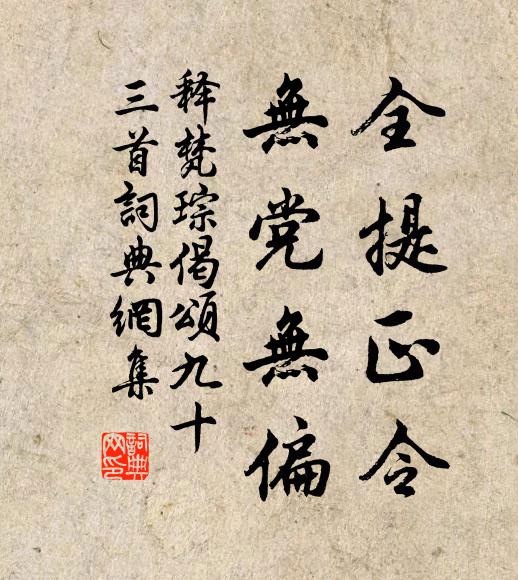 全提正令
無党無偏
释梵琮偈頌九十
三首詞典網集
詞典网印